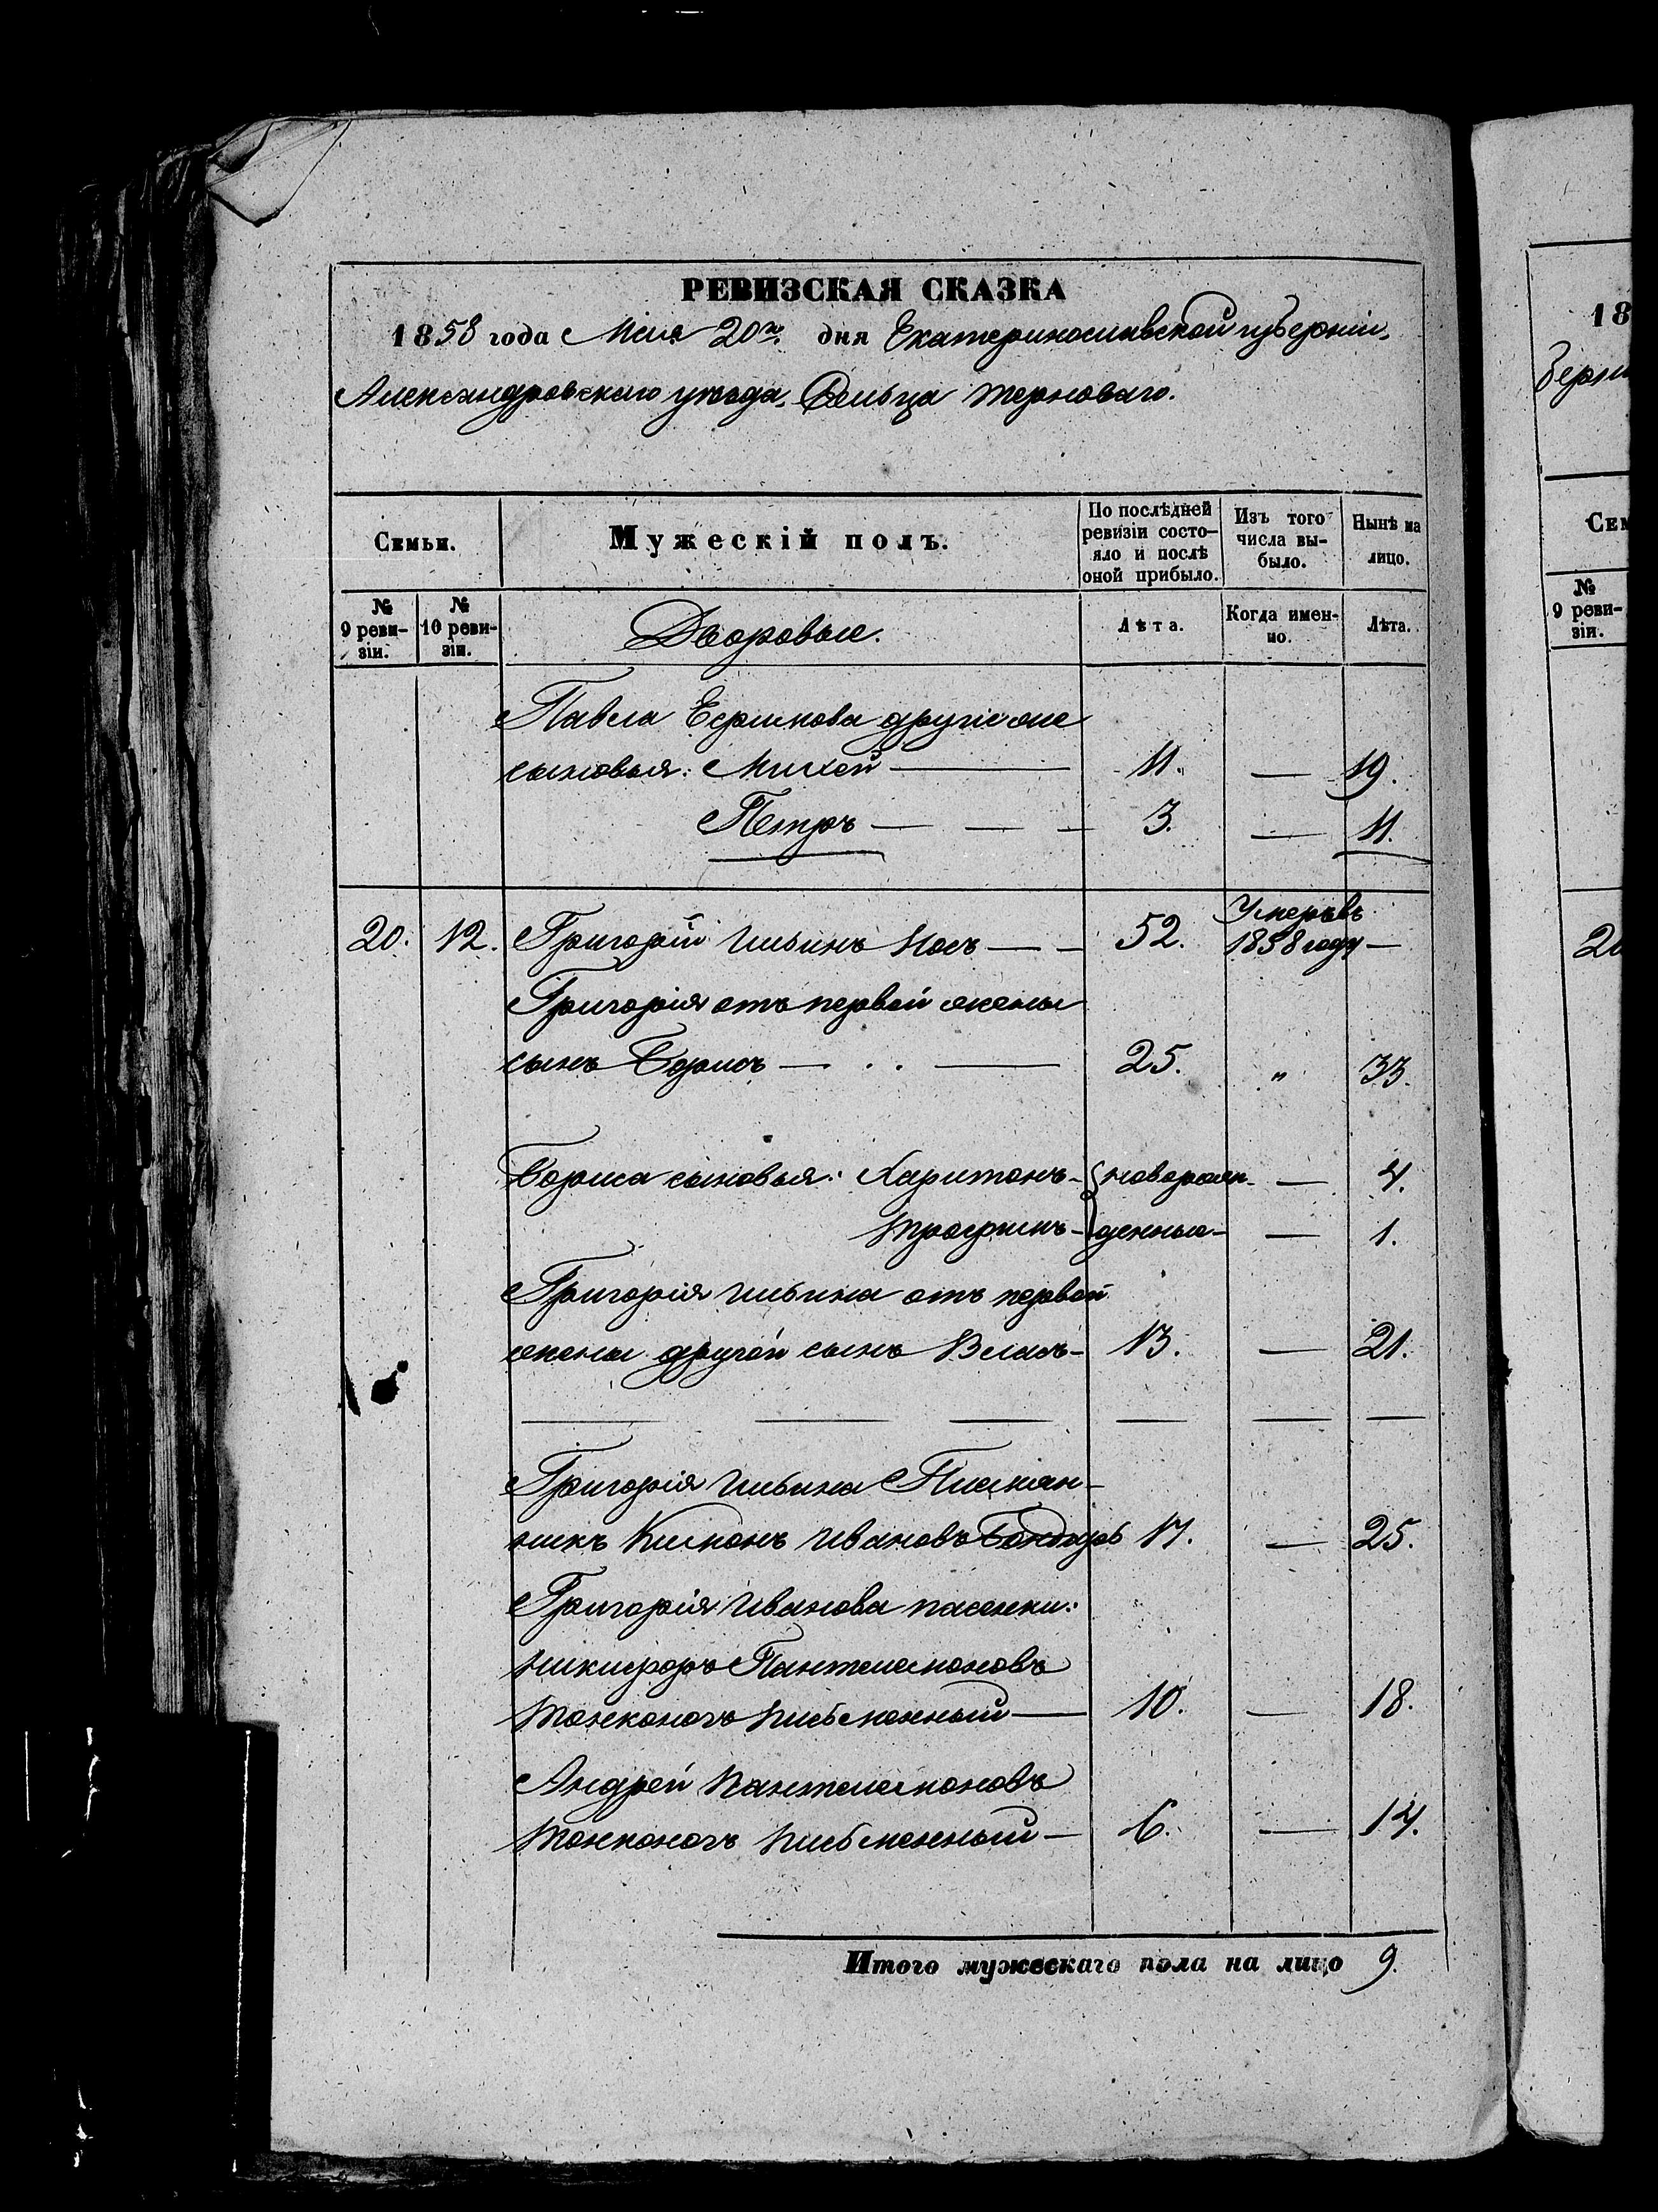 РЕВИЗСКАЯ СКАЗКА
1858 года Мая 20го дня Екатеринославской губерніи,
Александровскаго уѣзда, Сельца Терноваго.
Семьи.
Мужескій полъ.
По послѣдней ревизіи состо-яло и послѣ оной прибыло.
Изъ того числа вы-было.
Нынѣ на лицо.
№ 9 реви-зіи.
№ 10 реви-зіи.
Дворовые.
Лѣта.
Когда имен-но.
Лѣта.
Павла другіе же
сыновья: Михей — 11. — 19.
Петръ — — — 3. — 11.
Умеръ въ
20. 12. Григорій Ильинъ Носъ — — 52. 1858 году —
Григорія отъ первой жены
сынъ Борисъ — . . — 25. " 33.
Бориса сыновья: Харитонъ - новорож- — 4.
Трофимъ - денные - — 1.
Григорія Ильина отъ первой
жены другой сынъ Власъ - 13. — 21.
Григорія Ильина Племян-
никъ Ивановъ 17. — 25.
Григорія Иванова пасенки:
Никифоръ Пантелемоновъ
Тонконогъ Письменный — 10. — 18.
Андрей Пантелемоновъ
Тонконогъ Письменный — 6. — 14.
Итого мужескаго пола на лицо 9.
18
Сем
№
9 реви-
зіи.
20